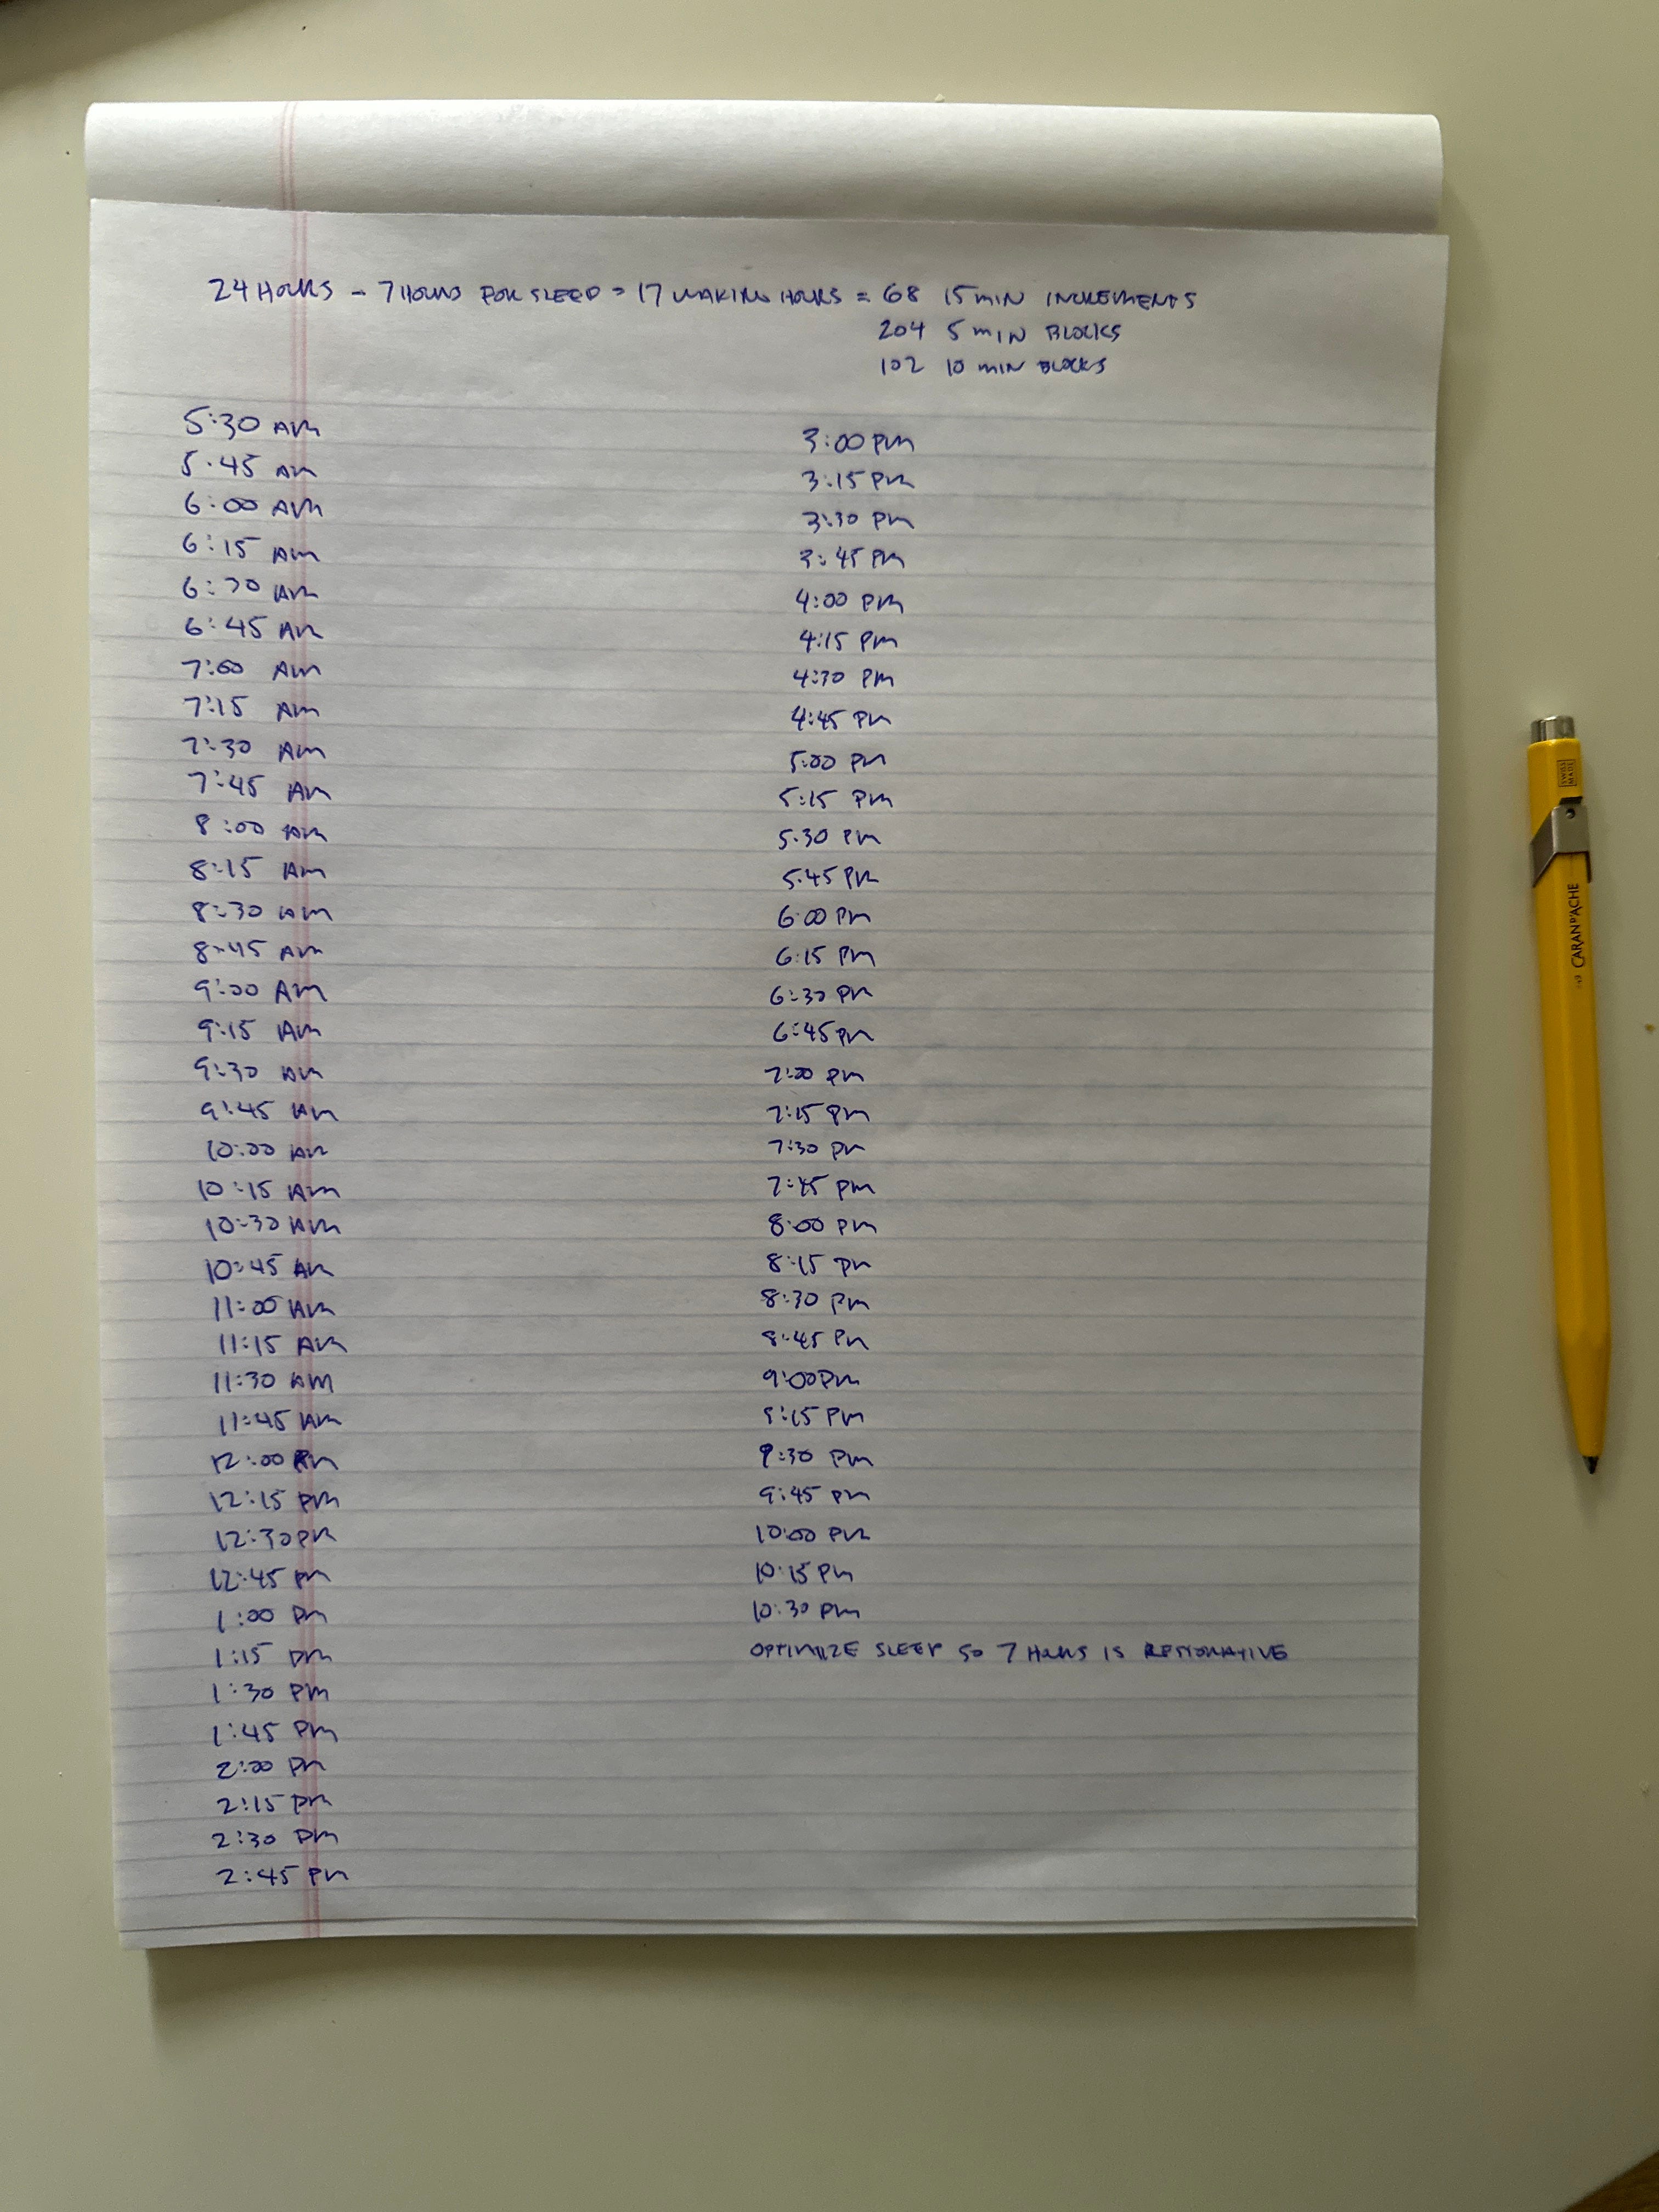 24 HOURS - 7 HOURS FOR SLEEP = 17 WAKING HOURS = 68 15 MIN INCREMENTS
204 5 MIN BLOCKS
102 10 MIN BLOCKS
5:30 AM
5:45 AM
6:00 AM
6:15 AM
6:30 AM
6:45 AM
7:00 AM
7:15 AM
7:30 AM
7:45 AM
8:00 AM
8:15 AM
8:30 AM
8:45 AM
9:00 AM
9:15 AM
9:30 AM
9:45 AM
10:00 AM
10:15 AM
10:30 AM
10:45 AM
11:00 AM
11:15 AM
11:30 AM
11:45 AM
12:00 PM
12:15 PM
12:30 PM
12:45 PM
1:00 PM
1:15 PM
1:30 PM
1:45 PM
2:00 PM
2:15 PM
2:30 PM
2:45 PM
3:00 PM
3:15 PM
3:30 PM
3:45 PM
4:00 PM
4:15 PM
4:30 PM
4:45 PM
5:00 PM
5:15 PM
5:30 PM
5:45 PM
6:00 PM
6:15 PM
6:30 PM
6:45 PM
7:00 PM
7:15 PM
7:30 PM
7:45 PM
8:00 PM
8:15 PM
8:30 PM
8:45 PM
9:00 PM
9:15 PM
9:30 PM
9:45 PM
10:00 PM
10:15 PM
10:30 PM
OPTIMIZE SLEEP SO 7 HOURS IS RESTORATIVE
SWISS
MADE
CARAN D'ACHE